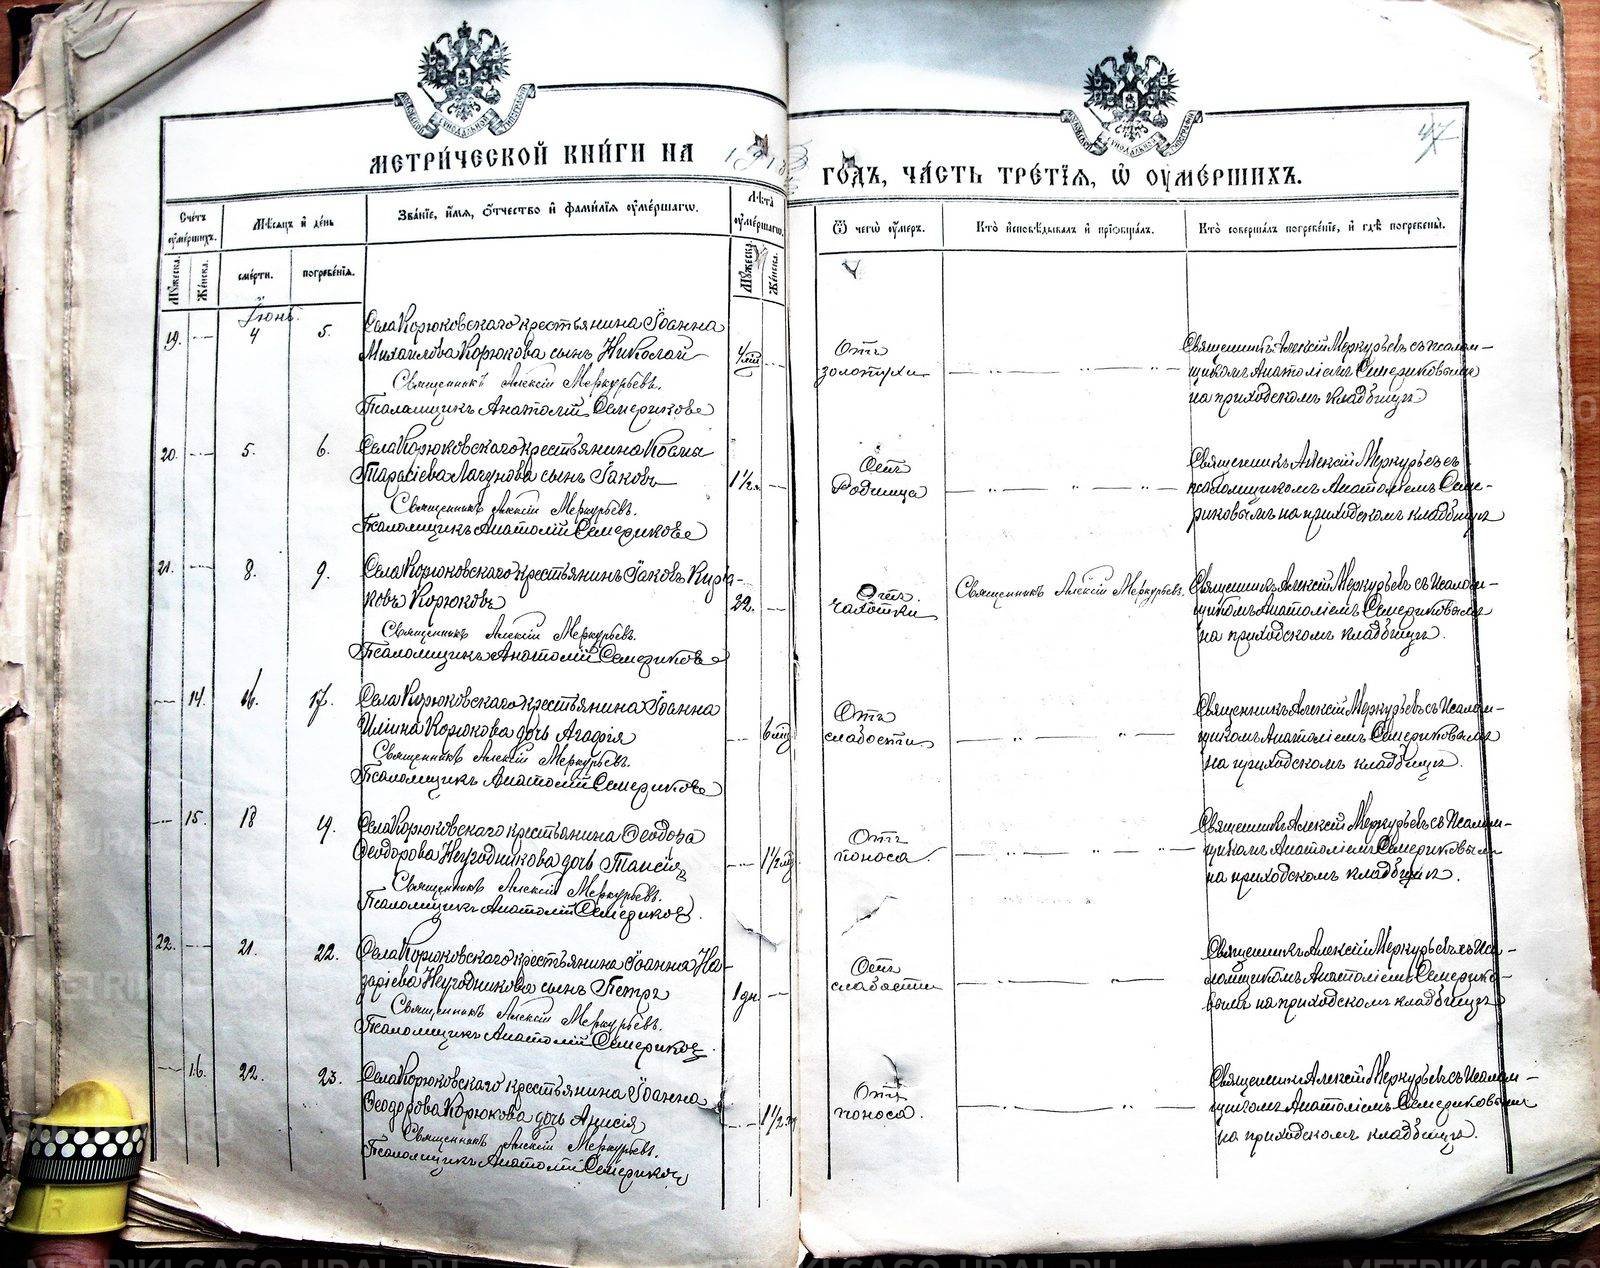 МЕТРИЧЕСКОЙ КНИГИ НА 1913
ГОДЪ, ЧАСТЬ ТРЕТІЯ, Ѡ ОУМЕРШИХЪ.
47
Счетъ оумершихъ.
Мѣсяцъ и день
Званіе, имя, отчество и фамилія оумершагѡ.
Лѣта оумершагѡ.
Ѿ чегѡ оумеръ.
Кто исповѣдывалъ и пріобщалъ.
Кто совершалъ погребеніе, и гдѣ погребены.
Мужеска. Женска. смерти. погребенія. Мужеска. Женска.
Іюнь.
19. 4 5. Села Корюковскаго крестьянина Іоанна
Михаилова Корюкова сынъ Николай
Священникъ Алексій Меркурьевъ.
Псаломщикъ Анатолій Семериковъ
Отъ
золотухи
Священникъ Алексій Меркурьевъ съ псалом-
щикомъ Анатоліемъ Семериковымъ
на приходскомъ кладбищѣ
20. 5. 6. Села Корюковскаго крестьянина Косма
Тарасіева сынъ Іаковъ 1½
Священникъ Алексій Меркурьевъ.
Псаломщикъ Анатолій Семериковъ
Отъ
Родимца
Священникъ Алексій Меркурьевъ съ
псаломщикомъ Анатоліемъ Семе-
риковымъ на приходскомъ кладбищѣ
21. 8. 9. Села Корюковскаго крестьянинъ Іаковъ
Корюковъ 22.
Священникъ Алексій Меркурьевъ.
Псаломщикъ Анатолій Семериковъ
Отъ
чахотки
Священникъ Алексій Меркурьевъ.
Священникъ Алексій Меркурьевъ съ псалом-
щикомъ Анатоліемъ Семериковымъ
на приходскомъ кладбищѣ.
14. 16. 17. Села Корюковскаго крестьянина Іоанна
Иліина Корюкова дочь Агафія
Священникъ Алексій Меркурьевъ.
Псаломщикъ Анатолій Семериковъ
Отъ
слабости
Священникъ Алексій Меркурьевъ съ псалом-
щикомъ Анатоліемъ Семериковымъ
на приходскомъ кладбищѣ.
15. 18 19. Села Корюковскаго крестьянина
Феодорова Неугодникова дочь Таисія
Священникъ Алексій Меркурьевъ.
Псаломщикъ Анатолій Семериковъ.
Отъ
поноса.
Священникъ Алексій Меркурьевъ съ псалом-
щикомъ Анатоліемъ Семериковымъ
на приходскомъ кладбищѣ.
22. 21. 22. Села Корюковскаго крестьянина Іоанна На-
заріева Неугодникова сынъ Петръ 1 дн.
Священникъ Алексій Меркурьевъ.
Псаломщикъ Анатолій Семериковъ.
Отъ
слабости
Священникъ Алексій Меркурьевъ съ пса-
ломщикомъ Анатоліемъ Семерико-
вымъ на приходскомъ кладбищѣ
16. 22. 23. Села Корюковскаго крестьянина Іоанна
Феодорова Корюкова дочь Анисія
Священникъ Алексій Меркурьевъ.
Псаломщикъ Анатолій Семериковъ
Отъ
поноса.
Священникъ Алексій Меркурьевъ съ псалом-
щикомъ Анатоліемъ Семериковымъ
на приходскомъ кладбищѣ.